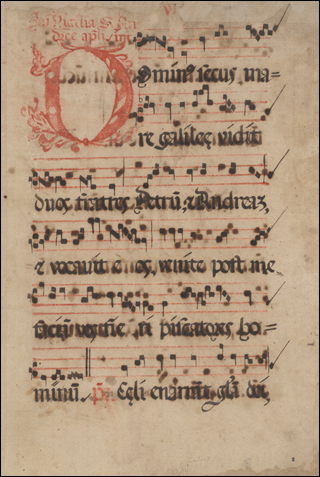 VI
In Vigilia S. An
dree apl̃i, in
Ominus secus ma=
re galilęę, vidit
duos fratres Petrũ, ⁊ Andreaz,
⁊ vocavit eos, venite post me
faciã vos fie ri piscatores ho=
minũ. ps. Cęli enarrãt glã dei,